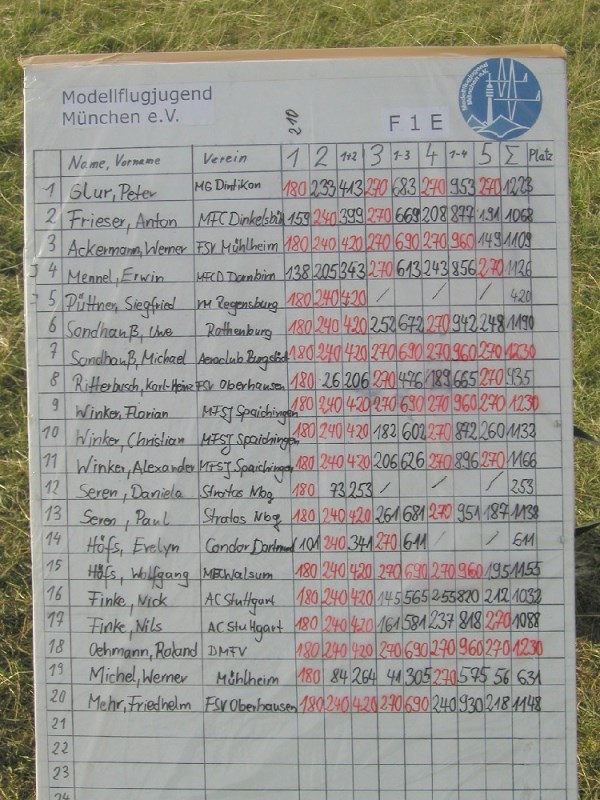 Modellflugjugend
München e.V.
210
F 1 E
Modellflugjugend München e.V.
Name, Vorname Verein 1 2 1+2 3 1-3 4 1-4 5 Σ Platz
1 Glur, Peter MG Dintikon 180 233 413 270 683 270 953 270 1223
2 Frieser, Anton MFC Dinkelsbühl 159 240 399 270 669 208 877 191 1068
3 Ackermann, Werner FSV Mühlheim 180 240 420 270 690 270 960 149 1109
J 4 Mennel, Erwin MFCD Dornbirn 138 205 343 270 613 243 856 270 1126
J 5 Püttner, Siegfried Regensburg 180 240 420 / / / 420
6 Sondhauß, Uwe Rothenburg 180 240 420 252 672 270 942 248 1190
7 Sondhauß, Michael Aeroclub 180 240 420 270 690 270 960 270 1230
8 Ritterbusch, Karl-Heinz FSV Oberhausen 180 26 206 270 476 189 665 270 935
9 Winker, Florian MFSJ Spaichingen 180 240 420 270 690 270 960 270 1230
10 Winker, Christian MFSJ Spaichingen 180 240 420 182 602 270 872 260 1132
11 Winker, Alexander MFSJ Spaichingen 180 240 420 206 626 270 896 270 1166
12 Seren, Daniela Stratos Nbg 180 73 253 / / / 253
13 Seren, Paul Stratos Nbg 180 240 420 261 681 270 951 187 1138
14 Höfs, Evelyn Condor Dortmund 101 240 341 270 611 / / 611
15 Höfs, Wolfgang MBC Walsum 180 240 420 270 690 270 960 195 1155
16 Finke, Nick AC Stuttgart 180 240 420 145 565 255 820 212 1032
17 Finke, Nils AC Stuttgart 180 240 420 161 581 237 818 270 1088
18 Oehmann, Roland DMFV 180 240 420 270 690 270 960 270 1230
19 Michel, Werner Mühlheim 180 84 264 41 305 270 575 56 631
20 Mehr, Friedhelm FSV Oberhausen 180 240 420 270 690 240 930 218 1148
21
22
23
24